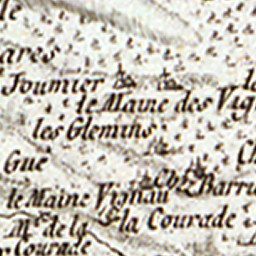 le
ares
Joumier
le
le Maine des Vig
les Glemins
Gué
Ch
Ch.au Barri
le Maine Vignau
la Courade
M.n de la
Courade